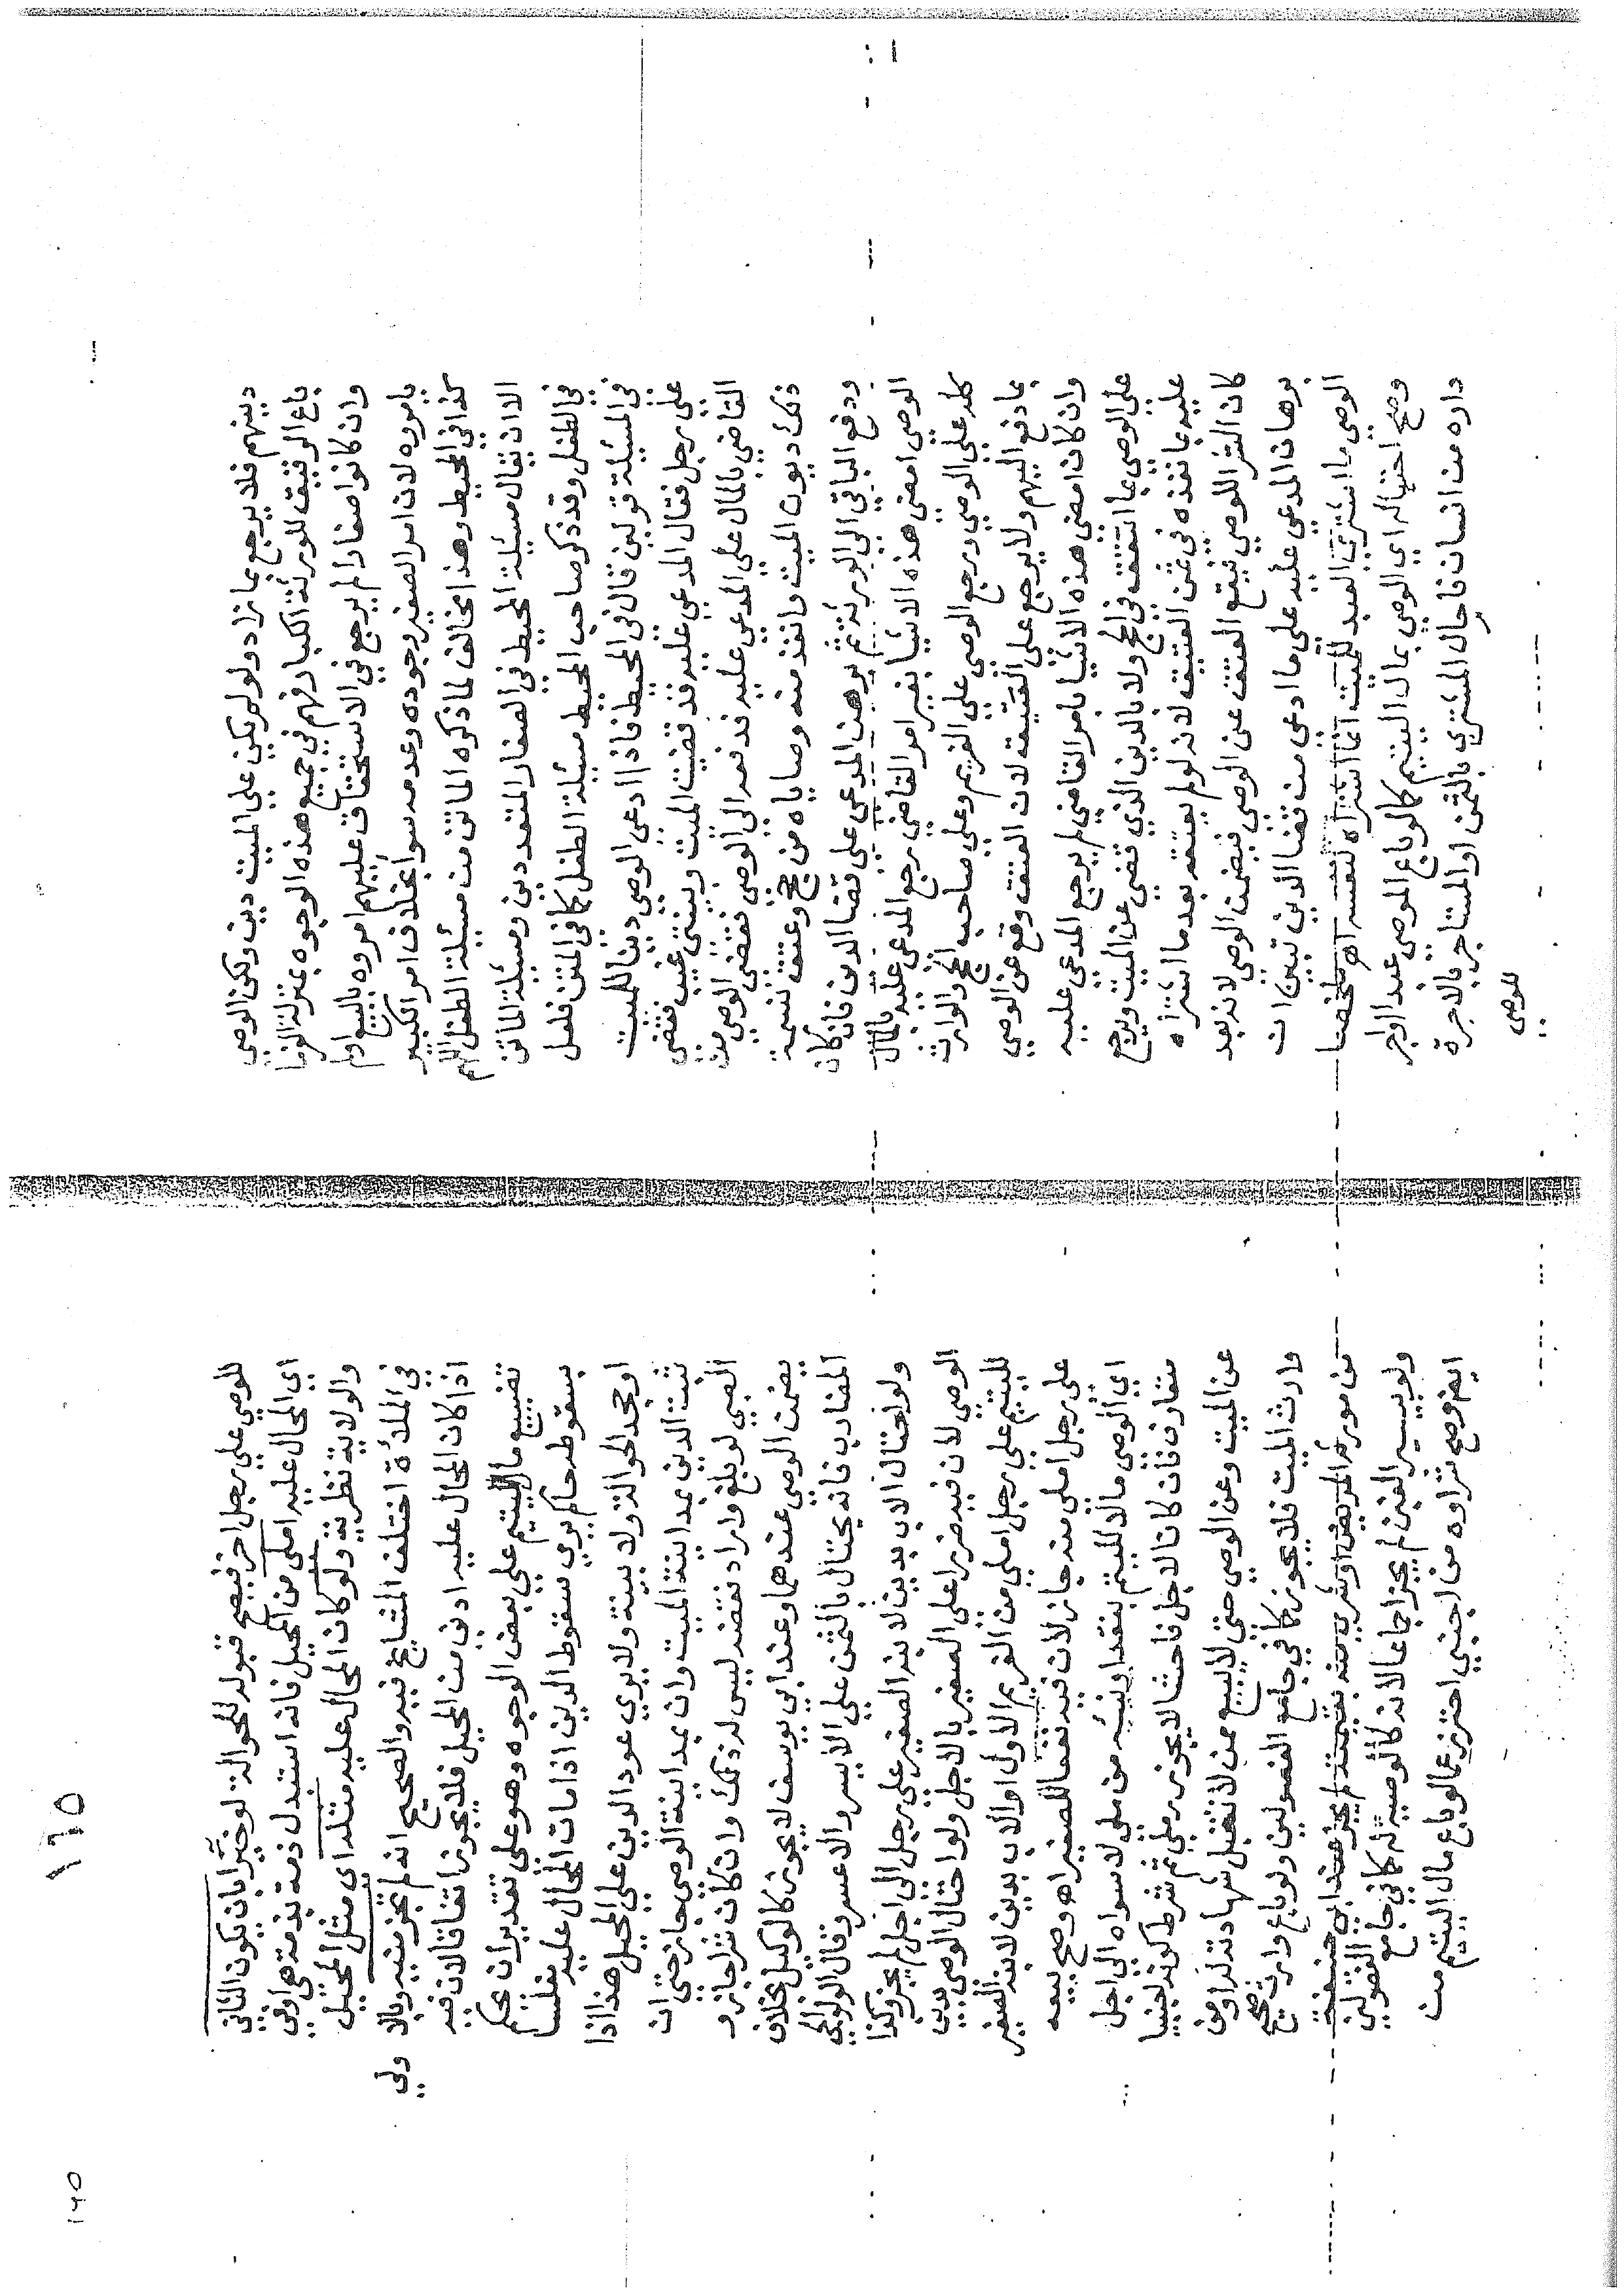 دينهم فلا يرجع بما زاد ولو لم يكن علي الميت دين ولكن الوصي
باع الرقيق للورثة الكبار فهم في جميع هذه الوجوه بمنزلة الغرما
وان كانوا صغارا لم يرجع في الاستحقاق عليهم امروه بالبيع اولم
يامروه لان امر الصغير وجوده وعدمه سوا بخلاف امر الكبير
كذا في المحيط وهذا مخالف لما ذكره الماتن من مسئلة الطفل اللهم
الا ان يقال مسئلة المحيط في الصغار المتعددين ومسئلة الماتن
في الطفل وقد ذكر صاحب المحيط مسئلة الطفل كما في المتن فلعل
في المسئلة قولين قال في المحيط فاذا ادعي الوصي دينا للميت
علي رجل فقال المدعي عليه قد قضيت الميت وبينتي غيب فقضي
القاضي بالمال علي المدعي عليه فدفعه الي الوصي فقضي الوصي منه
ذلك ديون الميت وانفذ منه وصاياه من حج وعتق نسمة
ودفع الباقي الي الورثة ثم برهن المدعي علي قضا الدين فان كان
الوصي امضي هذه الاشيا بغير امر القاضي رجع المدعي عليه بالمال
كله علي الوصي ورجع الوصي علي الغريم وعلي صاحب الحج والوارث
بما دفع اليهم ولا يرجع علي العتيقة لان العتق وقع عن الوصي
وان كان امضي هذه الاشيا بامر القاضي لم يرجع المدعي عليه
علي الوصي بما انفقه في الحج ولا بالدين الذي قضي عن الميت ويرجع
عليه بما نفذه في ثمن العتيقة لانه لو لم يعتقه بعد ما اشتراه
كان الشرا للوصي فيقع العتق عن الوصي فيضمن الوصي لانه بعد
برهان المدعي عليه علي ما ادعي من قضا الدين تبين ان
الوصي ما اشتري العبد للميت انما اشتراه لنفسه اهر ملخصا
وصح احتياله اي الوصي بمال اليتيم كما لو باع الوصي عبدا او اجر
داره من انسان فاحال المشتري بالثمن او المستاجر بالاجرة
للوصي
١٦٥
١٦٥
للوصي علي رجل اخر فيصح قبوله للحوالة لو خيرا بان يكون الثاني
اي المحال عليه املي من المحيل فانه استبدل ذمة بذمة هي اوفي
والولاية نظرية ولو كان المحال عليه مثله اي مثل المحيل
في الملاة اختلف المشايخ فيه والصحيح انه لم تجز منيه وبالا ولي
اذا كان المحال عليه ادني من المحيل فلا يجوز اتفاقا لان فيه
تضييع مال اليتيم علي بعض الوجوه وهو علي تقدير ان يحكم
بسقوطه حاكم يري سقوط الدين اذا مات المحال عليه مفلسا
او جحد الحوالة ولا بينة ولا يري عود الدين علي المحيل هذا اذا
ثبت الدين بمداينة الميت وان بمداينة الوصي جاز حتي ان
الصبي لو بلغ واراد نقضه ليس له ذلك وان كان شرا جاز و
يضمن الوصي عندهما وعند ابي يوسف لا يجوز كالوكيل بخلاف
المضارب فانه يحتال بالثمن علي الايسر والاعسر وقال الولوالجي
ولو احتال الاب بدين لابنه الصغير علي رجل الي اجل لم يجز وكذا
الوصي لان فيه ضررا علي الصغير بالاجل ولو احتال الوصي بدين
لليتيم علي رجل املي من الغريم الاول او الاب بدين لابنه الصغير
علي رجل املي منه جاز لان فيه نفعا للصغير اهر وصح بيعه
اي الوصي ماله لليتيم بنقد او نسئه من ملي لا سواه الي اجل
متعارف فان كان الاجل فاحشا لا يجوز برملي ثم شرط كونه اجنبيا
عن الميت وعن الوصي حتي لا يبيع ممن لا تقبل شهادته له او من
وارث الميت فلا يجوز كما في جامع الفصولين ولو باع وارث صح
من مورثه المريض او شري منه بقيمته لم يجز عند ابي حنيفة
ولو بيسير الغبن لم يجز اجماعا لانه كالوصية له كما في جامع الفصولين
ايضا وصح شراوه من اجنبي احترز عما لو باع مال اليتيم من